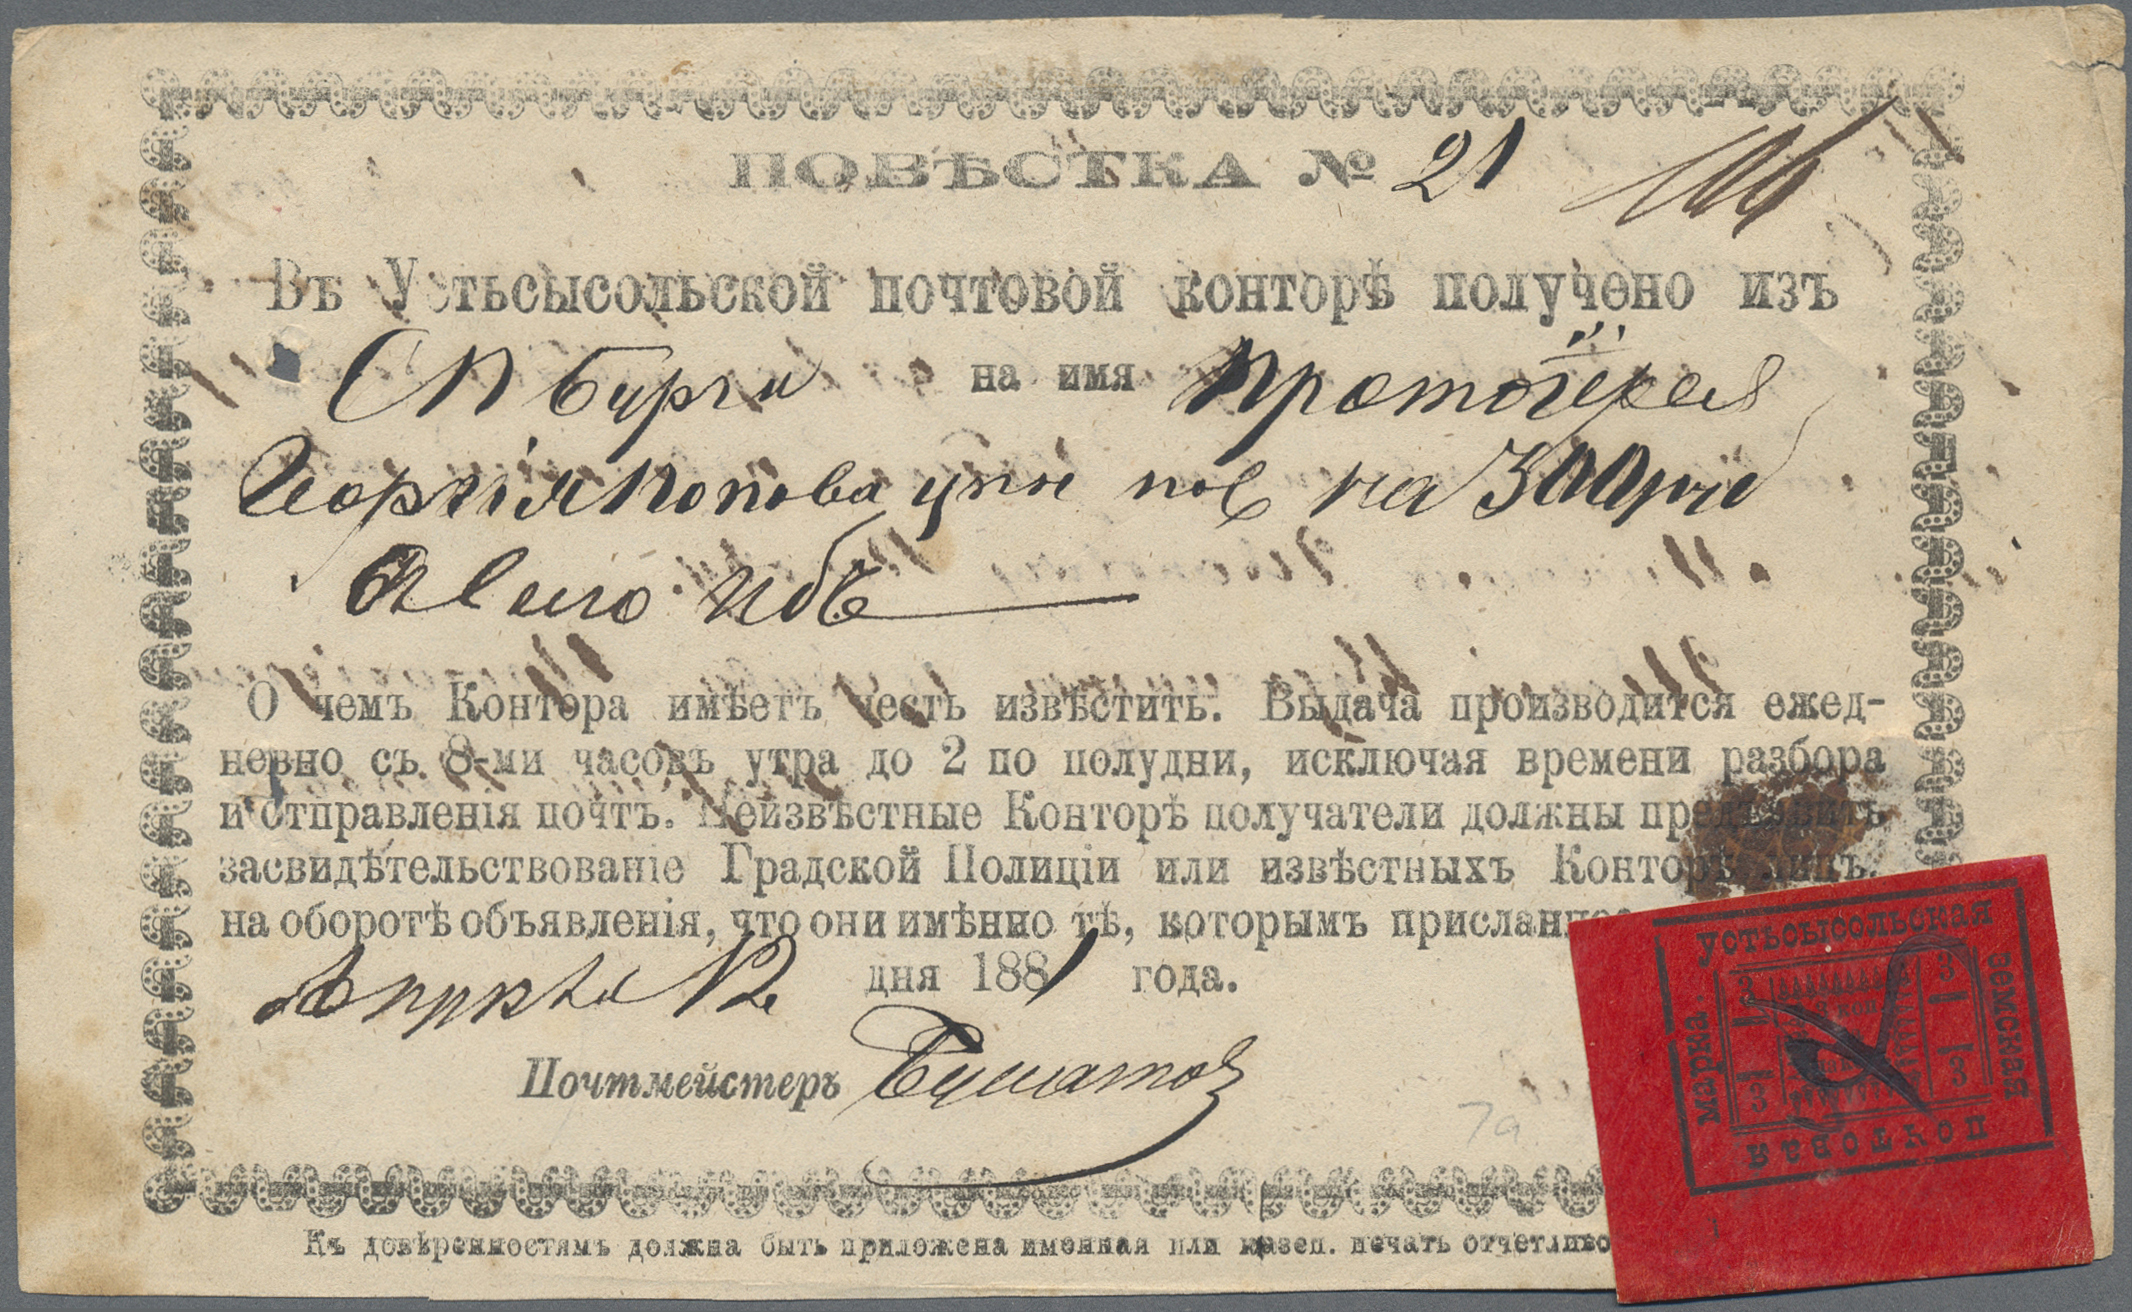 ПОВѢСТКА № 21
Въ Устьсысольской почтовой конторѣ получено изъ
СПбурга на имя Протоіерея
Георгія Попова цѣн пос на 300 руб
О чемъ Контора имѣетъ честь извѣстить. Выдача производится ежед-
невно съ 8-ми часовъ утра до 2 по полудни, исключая времени разбора
и отправленія почтъ. Неизвѣстные Конторѣ получатели должны предъявить
засвидѣтельствованіе Градской Полиціи или извѣстныхъ Конторѣ лицъ.
на оборотѣ объявленія, что они имѣнно тѣ, которымъ присланное
Апрѣля 12 дня 1881 года.
Почтмейстеръ
Къ довѣренностямъ должна быть приложена именная или казен. печать отчетливо
7а
устьсысольская
земская
почтовая
марка.
3 3
3 коп
3 3